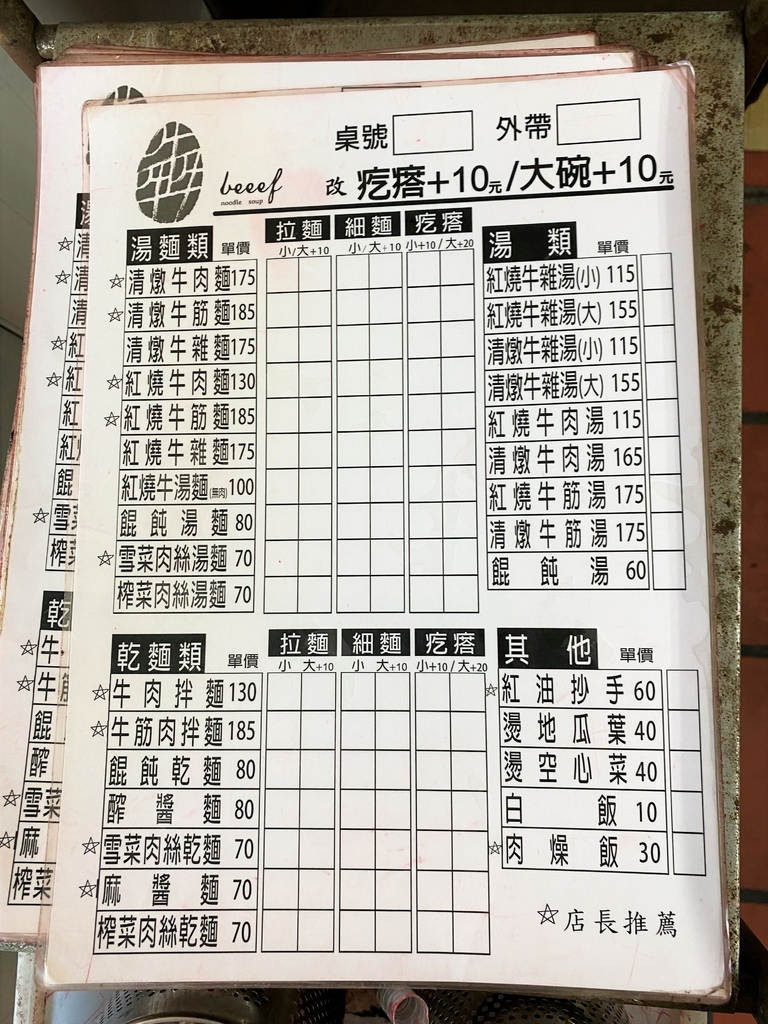 桌號 外帶
beeef
noodle soup
改 疙瘩+10元/大碗+10元
湯麵類 單價 拉麵 細麵 疙瘩
小/大+10 小/大+10 小+10/大+20
☆清燉牛肉麵175
☆清燉牛筋麵185
清燉牛雜麵175
☆紅燒牛肉麵130
☆紅燒牛筋麵185
紅燒牛雜麵175
紅燒牛湯麵(無肉)100
餛飩湯麵 80
☆雪菜肉絲湯麵 70
榨菜肉絲湯麵 70
湯類 單價
紅燒牛雜湯(小) 115
紅燒牛雜湯(大) 155
清燉牛雜湯(小) 115
清燉牛雜湯(大) 155
紅燒牛肉湯 115
清燉牛肉湯 165
紅燒牛筋湯 175
清燉牛筋湯 175
餛飩湯 60
乾麵類 單價 拉麵 細麵 疙瘩
小 大+10 小 大+10 小+10/大+20
☆牛肉拌麵130
☆牛筋肉拌麵185
餛飩乾麵 80
醡醬麵 80
☆雪菜肉絲乾麵 70
☆麻醬麵 70
榨菜肉絲乾麵 70
其他 單價
☆紅油抄手 60
燙地瓜葉 40
燙空心菜 40
白飯 10
☆肉燥飯 30
☆店長推薦